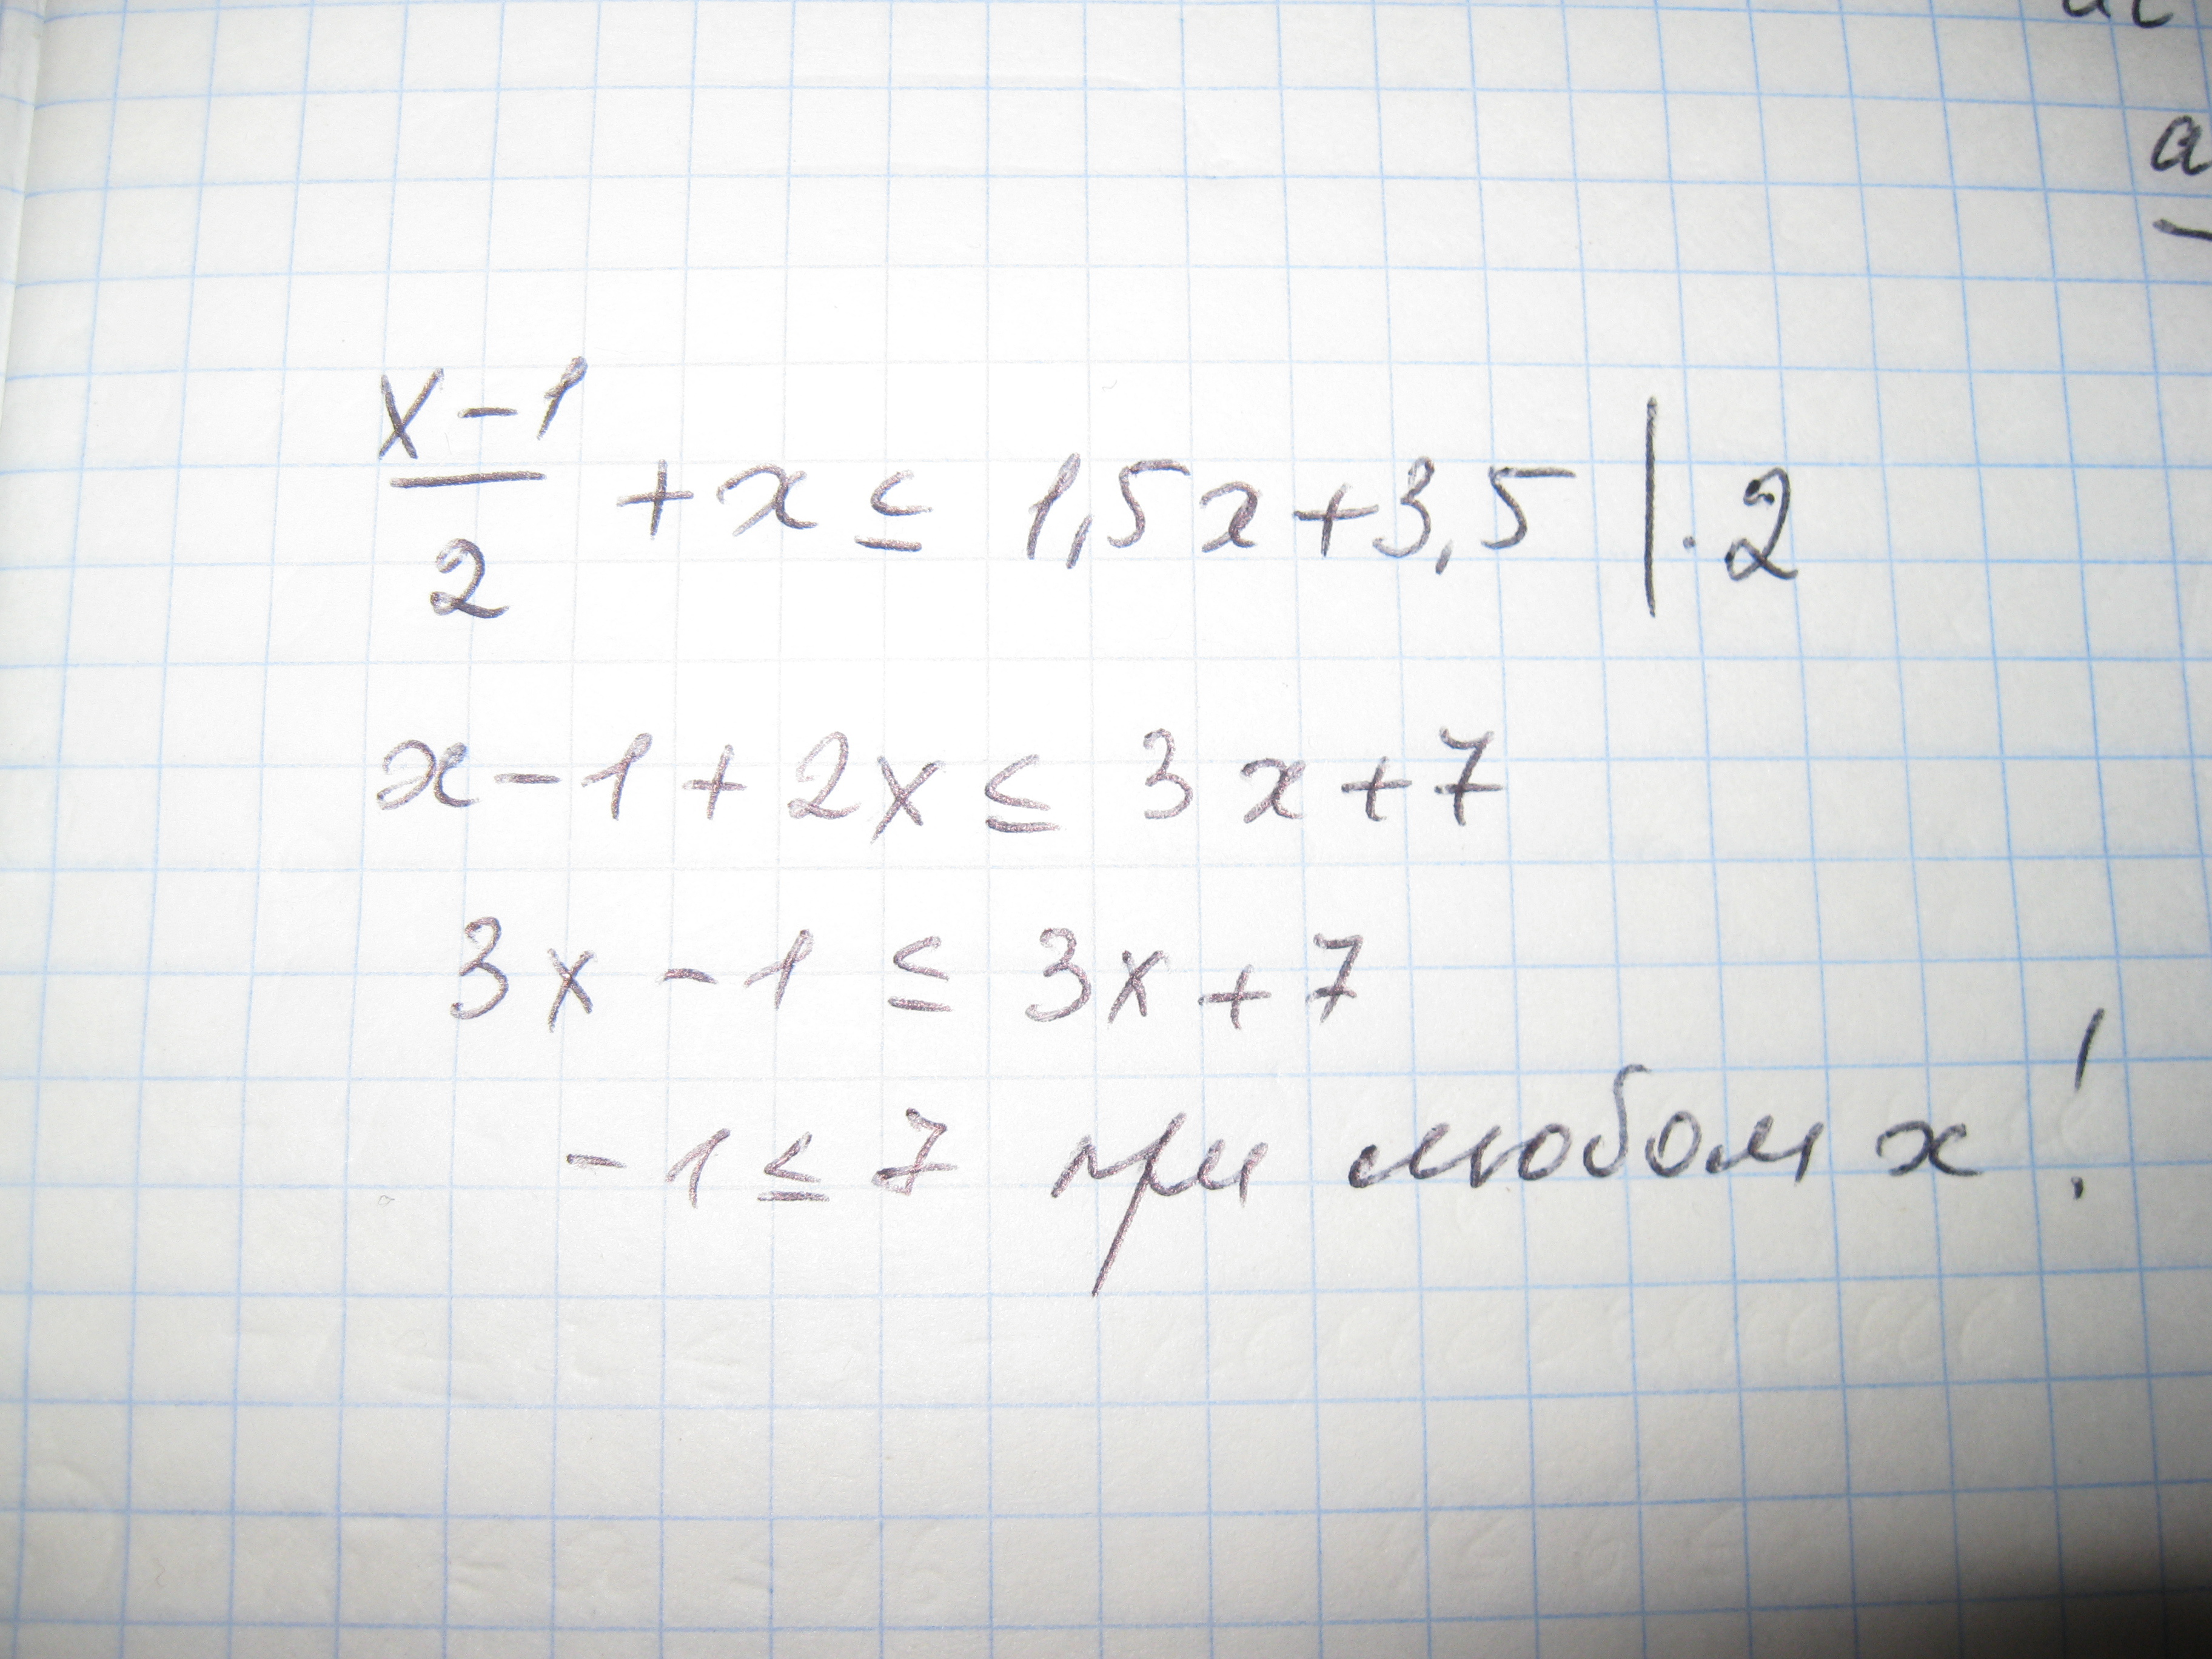 x-1/2 + x ≤ 1,5x+3,5 |·2
x-1+2x ≤ 3x+7
3x-1 ≤ 3x+7
-1≤7 при любом x!